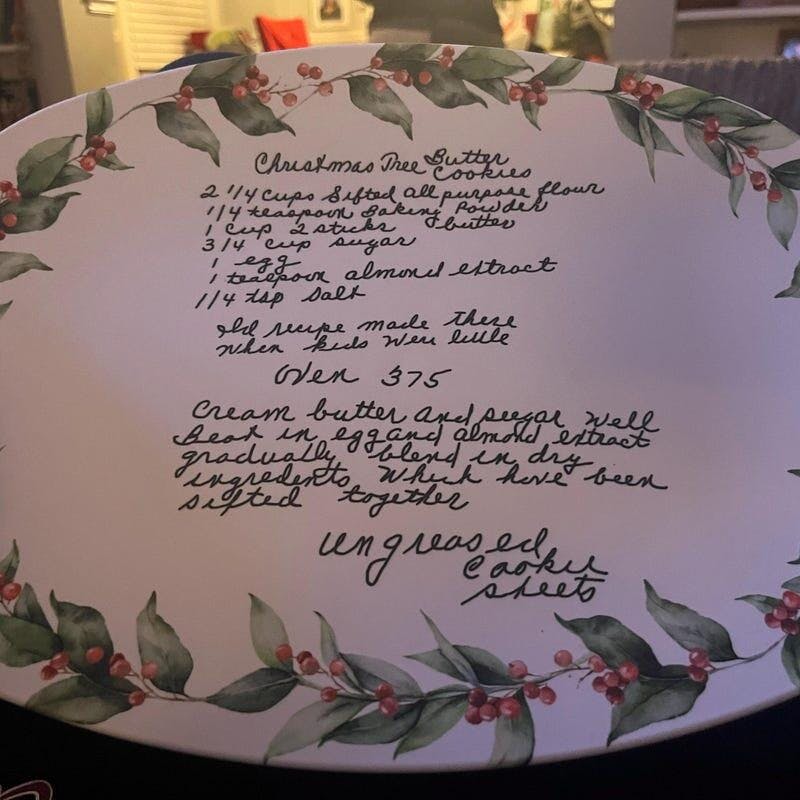 Christmas Tree Butter
Cookies
2 1/4 cups Sifted all purpose flour
1/4 teaspoon Baking Powder
1 cup 2 sticks butter
3/4 cup sugar
1 egg
1 teaspoon almond extract
1/4 tsp salt
Old recipe made these
when kids were little
Oven 375
Cream butter and sugar well
Beat in egg and almond extract
gradually blend in dry
ingredents which have been
sifted together
ungreased
cookie
sheets